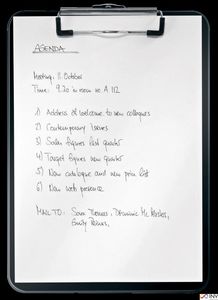 AGENDA
Meeting: 11. October
Time: 9.20 in room no A 112
1) Address of welcome to new colleagues
2) Contemporary Issues
3) Sales figures last quarter
4) Target figures new quarter
5) New catalogue and new price list
6) New web presence
MAIL TO: Sara Thomas, Dominic Mc
Emily